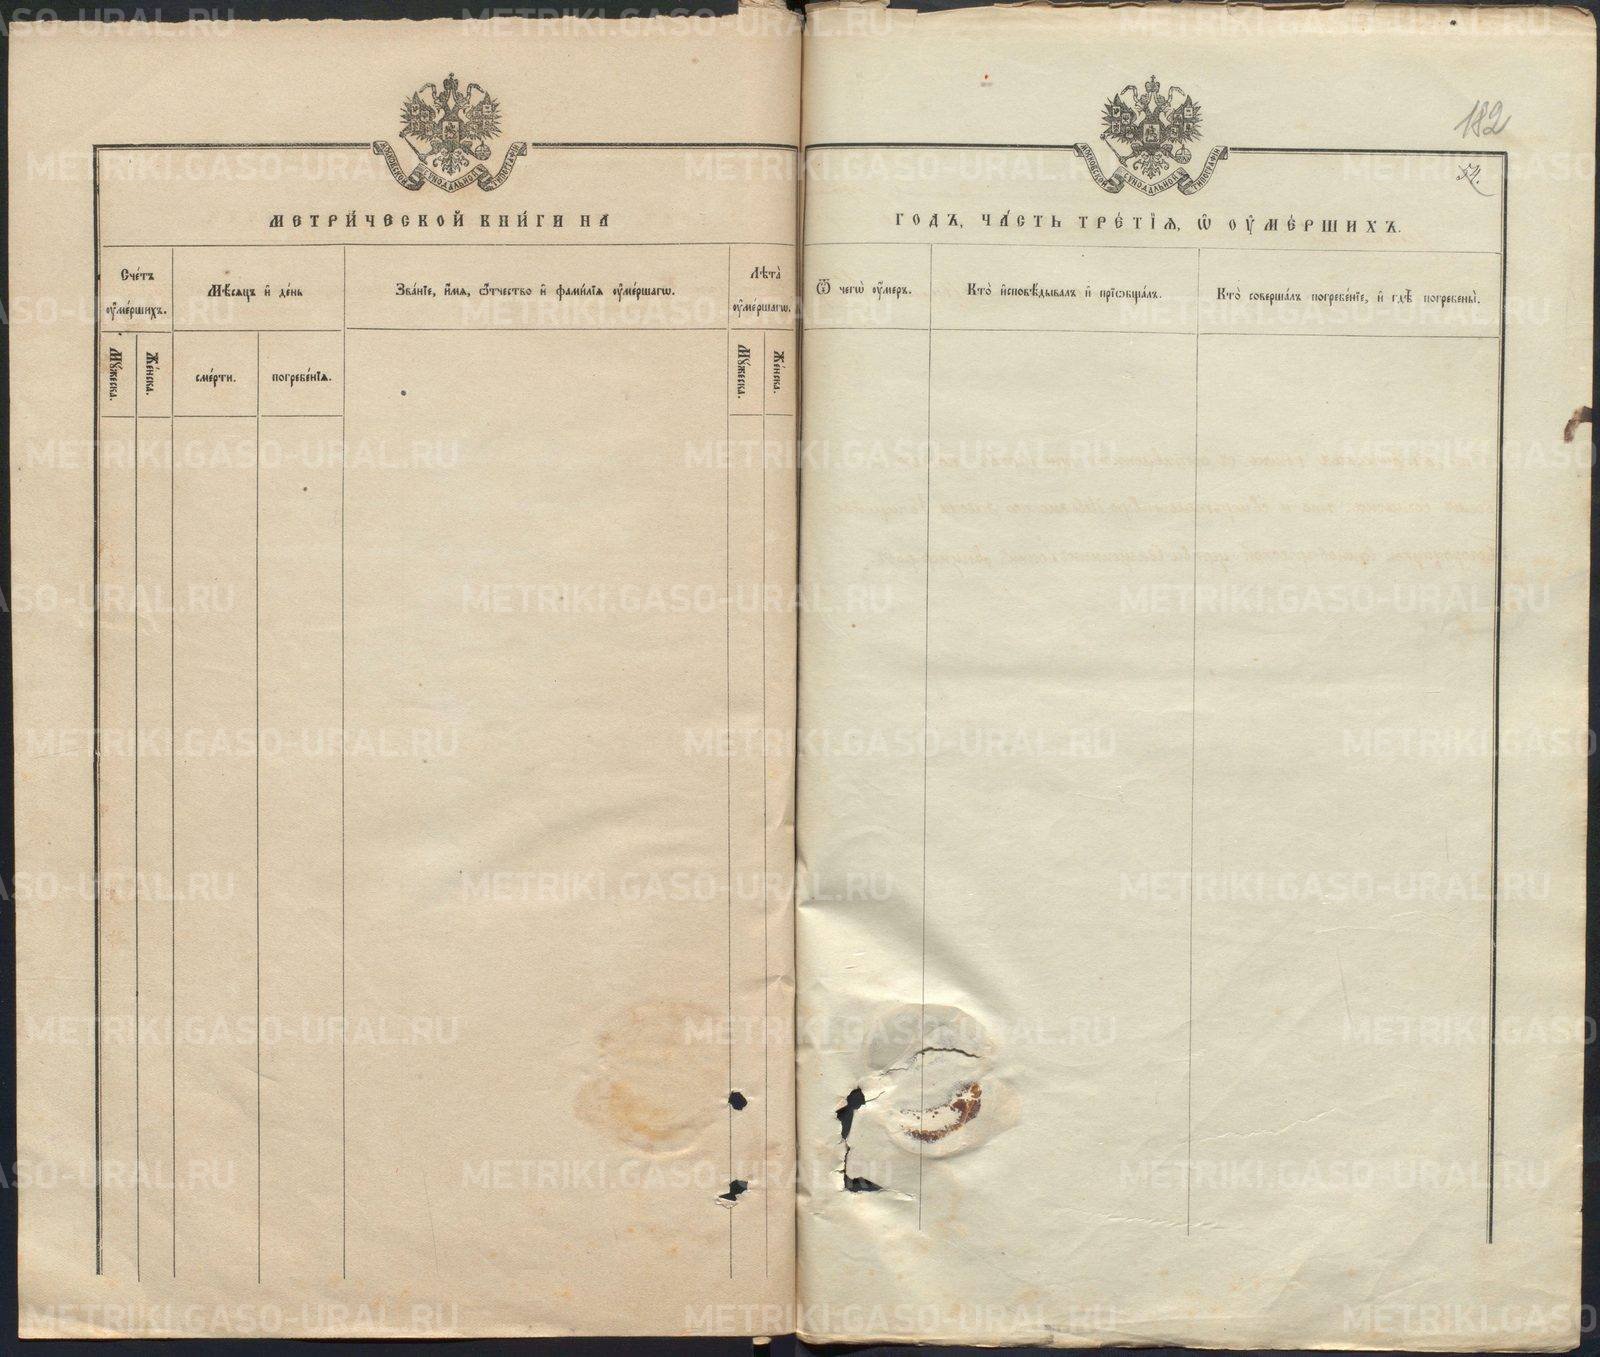 182
54.
МОСКОВСКОЙ СѴНОДАЛЬНОЙ ТИПОГРАФІИ
МОСКОВСКОЙ СѴНОДАЛЬНОЙ ТИПОГРАФІИ
МЕТРИ́ЧЕСКОЙ КНИ́ГИ НА
ГОДЪ, ЧА́СТЬ ТРЕ́ТІЯ, Ѡ ОУ҆МЕ́РШИХЪ.
Сче́тъ
оу҆ме́ршихъ.
Мѣ́сяцъ и҆ де́нь
Зва́нїе, и҆́мя, ѻ҆́тчество и҆ фами́лїя оу҆ме́ршагѡ.
Лѣта̀
оу҆ме́ршагѡ.
Ѿ чегѡ̀ оу҆́меръ.
Кто̀ и҆сповѣ́дывалъ и҆ прїѡбща́лъ.
Кто̀ соверша́лъ погребе́нїе, и҆ гдѣ̀ погребены̀.
Мꙋ́жеска.
Же́нска.
сме́рти.
погребе́нїѧ.
Мꙋ́жеска.
Же́нска.
METRIKI.GASO-URAL.RU